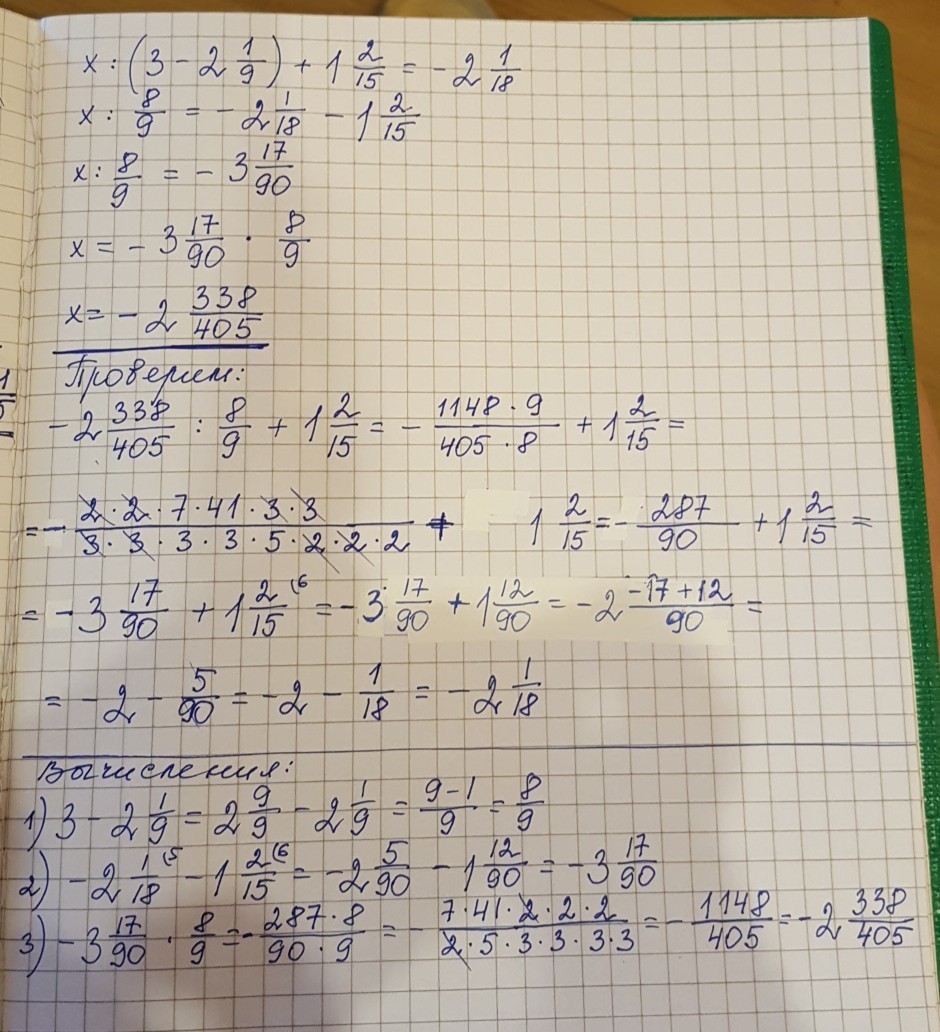 x : (3 - 2 1/9) + 1 2/15 = - 2 1/18
x : 8/9 = - 2 1/18 - 1 2/15
x : 8/9 = - 3 17/90
x = - 3 17/90 · 8/9
x = - 2 338/405
Проверим:
- 2 338/405 : 8/9 + 1 2/15 = - 1148 · 9/405 · 8 + 1 2/15 =
= - 2 · 2 · 7 · 41 · 3 · 3/3 · 3 · 3 · 3 · 5 · 2 · 2 · 2 + 1 2/15 = - 287/90 + 1 2/15 =
= - 3 17/90 + 1 2/15 (6 = - 3 17/90 + 1 12/90 = - 2 -17 + 12/90 =
= - 2 - 5/90 = - 2 - 1/18 = - 2 1/18
Вычисления:
1) 3 - 2 1/9 = 2 9/9 - 2 1/9 = 9 - 1/9 = 8/9
2) - 2 1/18 (5 - 1 2/15 (6 = - 2 5/90 - 1 12/90 = - 3 17/90
3) - 3 17/90 · 8/9 = - 287 · 8/90 · 9 = - 7 · 41 · 2 · 2 · 2/2 · 5 · 3 · 3 · 3 · 3 = - 1148/405 = - 2 338/405